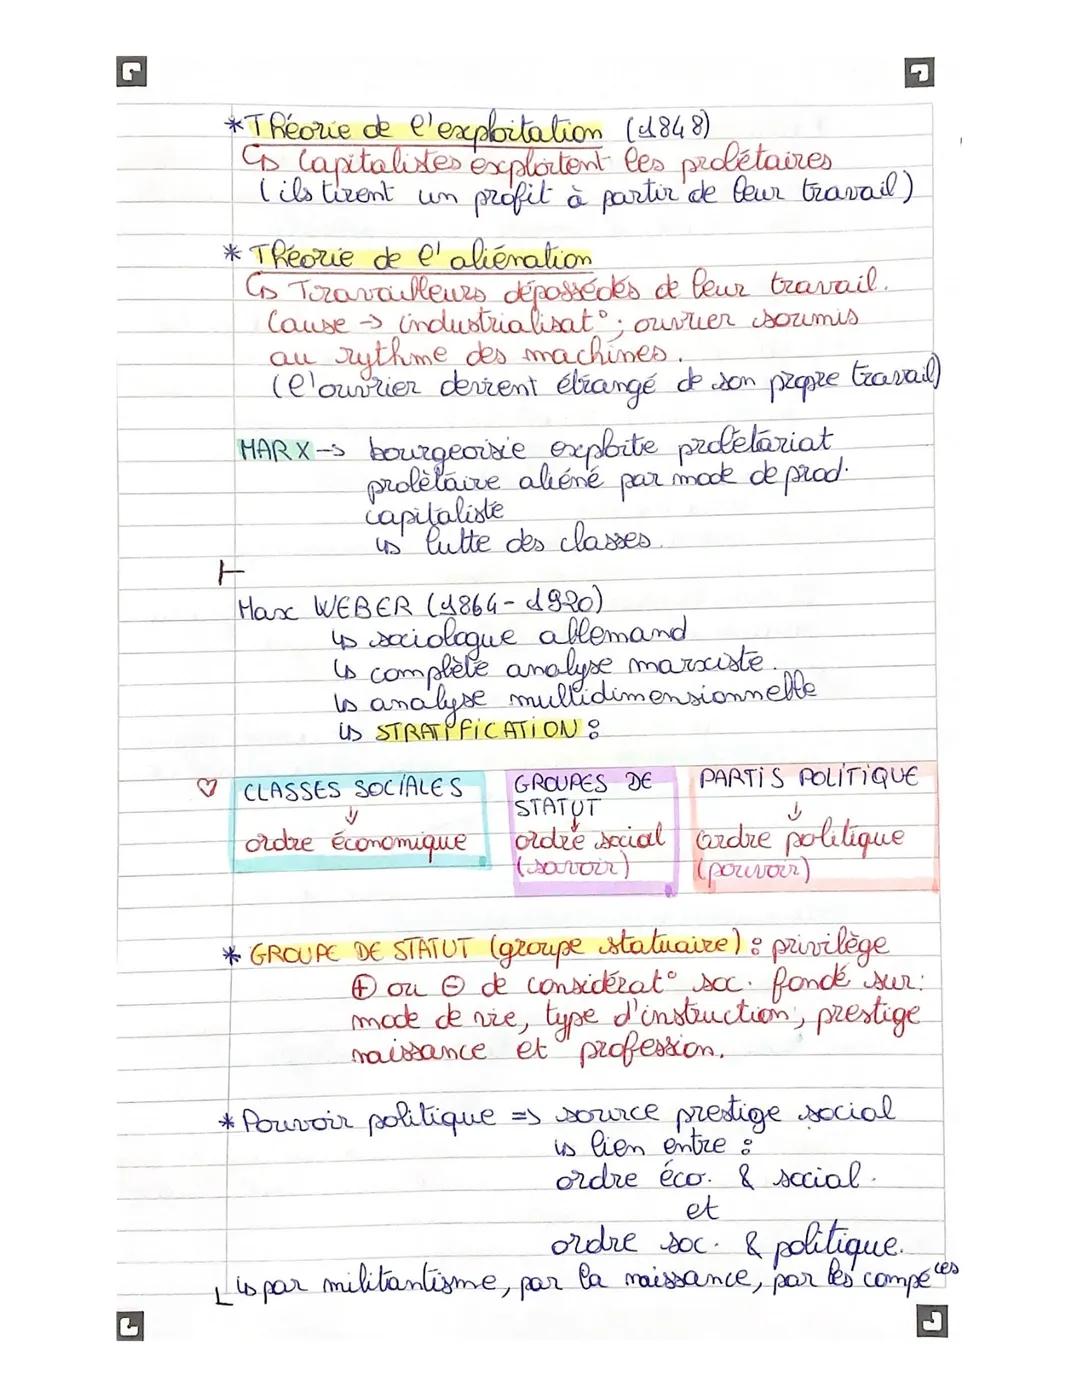 *Théorie de l'exploitation (1848)
↳ Capitalistes exploitent les prolétaires
(ils tirent un profit à partir de leur travail)
* Théorie de l'aliénation
↳ Travailleurs dépossédés de leur travail.
Cause → industrialisat°; ouvrier soumis
au rythme des machines.
(l'ouvrier devient étrangé de son propre travail)
MARX → bourgeoisie exploite prolétariat
prolètaire aliéné par mode de prod.
capitaliste
↳ lutte des classes.
Max WEBER (1864-1920)
↳ sociologue allemand
↳ complète analyse marxiste.
↳ analyse multidimensionnelle
↳ STRATIFICATION :
♡ CLASSES SOCIALES
↓
ordre économique
GROUPES DE
STATUT
↓
ordre social
(savoir)
PARTIS POLITIQUE
↓
ordre politique
(pouvoir)
* GROUPE DE STATUT (groupe statuaire) : privilège
⊕ ou ⊖ de considérat° soc. fondé sur:
mode de vie, type d'instruction, prestige
naissance et profession.
* Pouvoir politique => source prestige social
↳ lien entre :
ordre éco. & social.
et
ordre soc. & politique.
↳ par militantisme, par la naissance, par les compé^ces